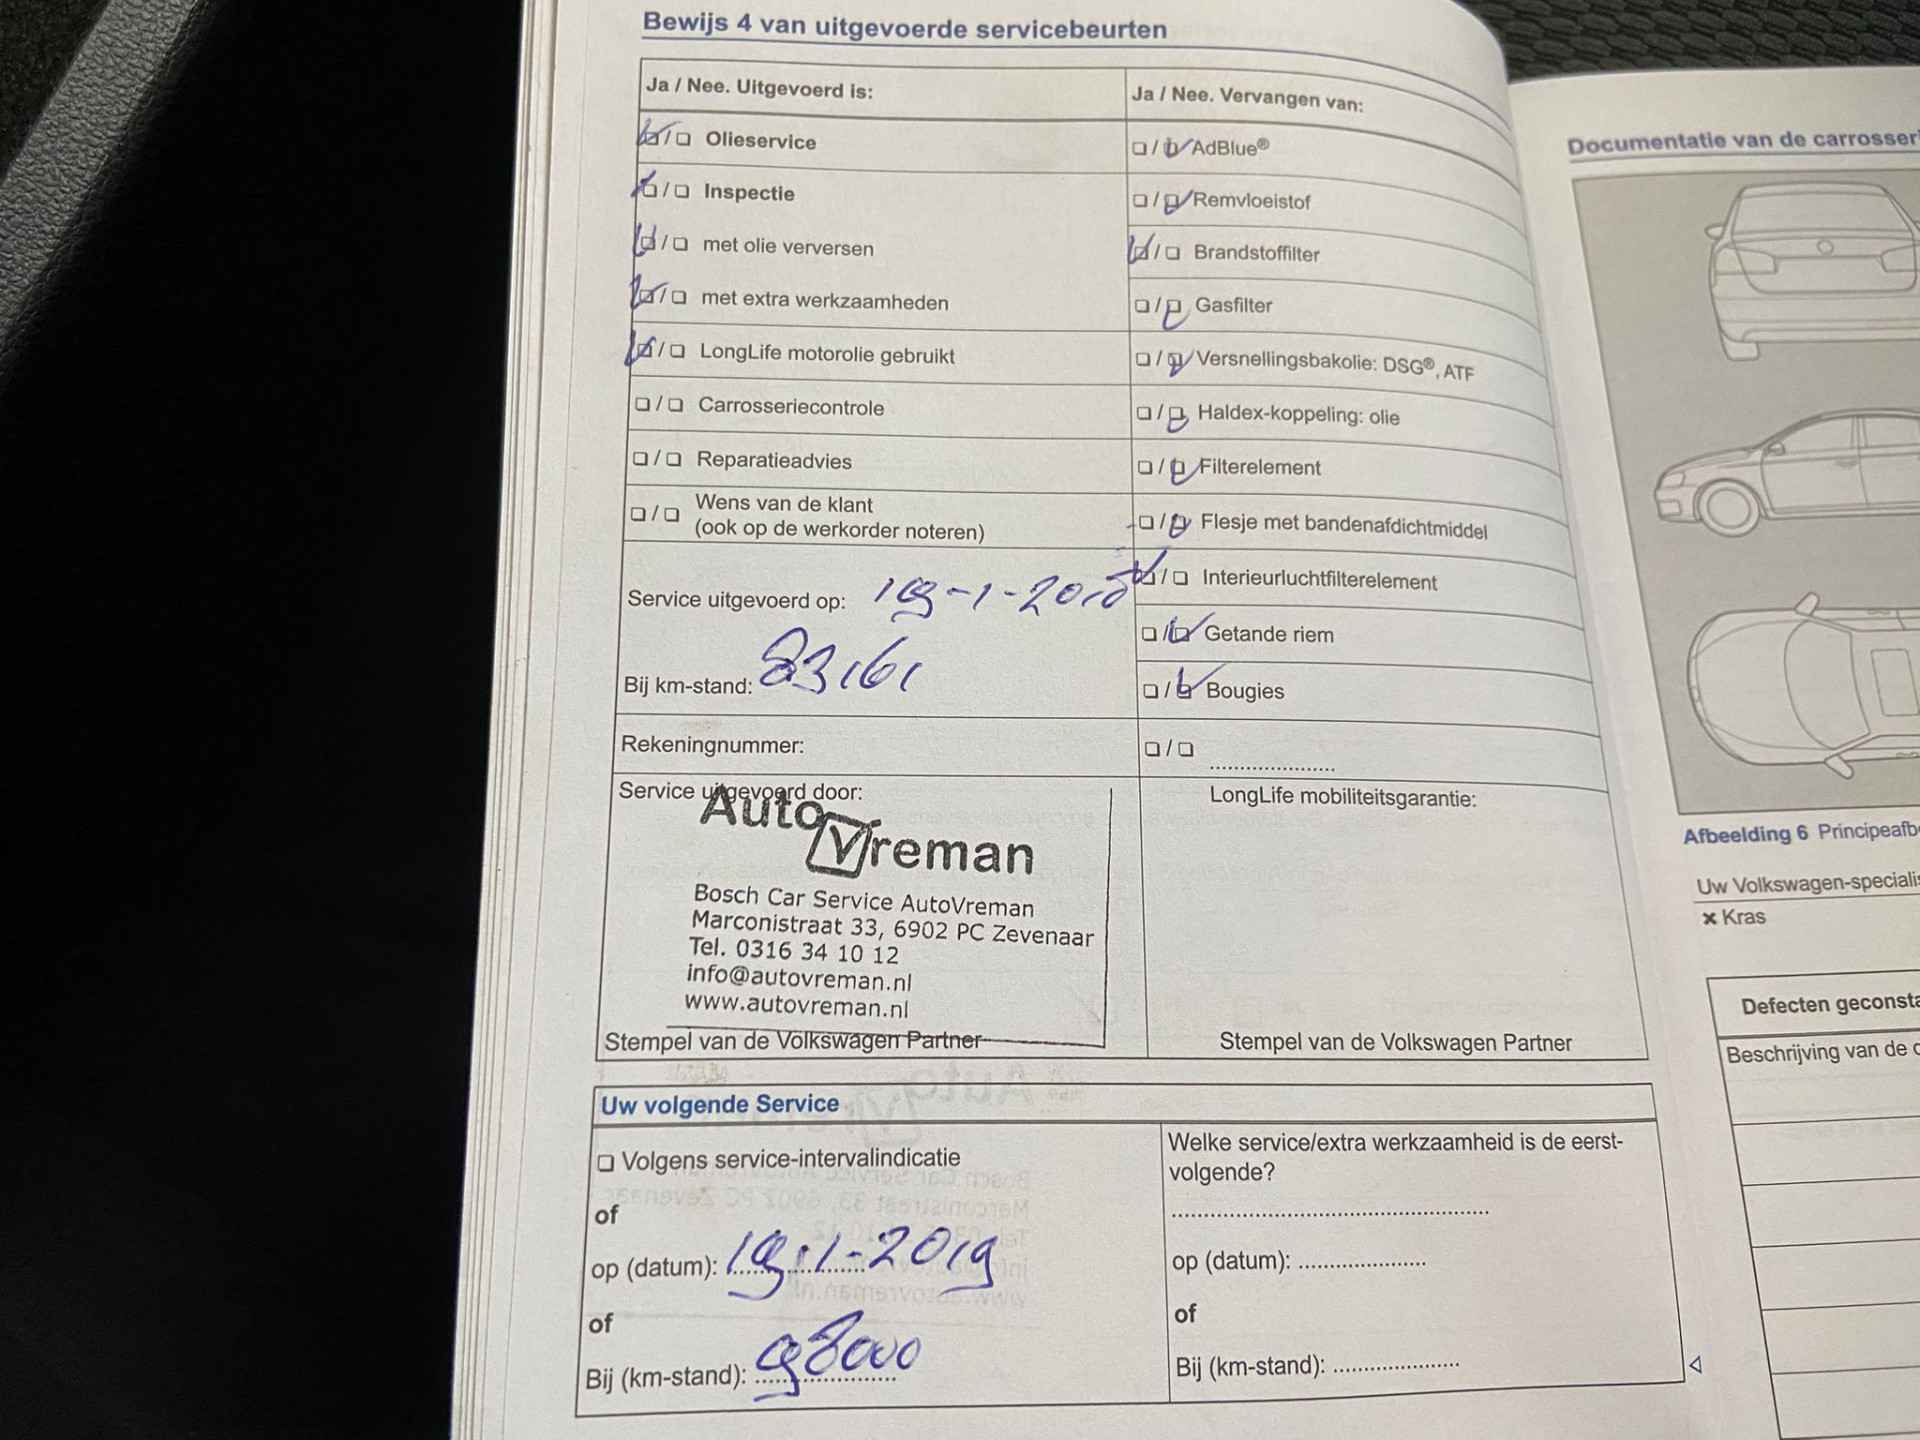 Bewijs 4 van uitgevoerde servicebeurten
Ja / Nee. Uitgevoerd is:
Olieservice
Inspectie
met olie verversen
met extra werkzaamheden
LongLife motorolie gebruikt
Carrosseriecontrole
Reparatieadvies
Wens van de klant
(ook op de werkorder noteren)
Service uitgevoerd op:
Bij km-stand: 83161
Rekeningnummer:
Service uitgevoerd door:
Auto
Vreman
Bosch Car Service AutoVreman
Marconistraat 33, 6902 PC Zevenaar
Tel. 0316 34 10 12
info@autovreman.nl
www.autovreman.nl
Stempel van de Volkswagen Partner
Ja / Nee. Vervangen van:
AdBlue®
Remvloeistof
Brandstoffilter
Gasfilter
Versnellingsbakolie: DSG®, ATF
Haldex-koppeling: olie
Filterelement
Flesje met bandenafdichtmiddel
Interieurluchtfilterelement
Getande riem
Bougies
LongLife mobiliteitsgarantie:
Stempel van de Volkswagen Partner
Uw volgende Service
Volgens service-intervalindicatie
of
op (datum): 19-1-2019
of
Bij (km-stand): 98000
Welke service/extra werkzaamheid is de eerst-
volgende?
op (datum):
of
Bij (km-stand):
Documentatie van de carrosser
Afbeelding 6 Principeafb
Uw Volkswagen-specialis
Kras
Defecten geconsta
Beschrijving van de